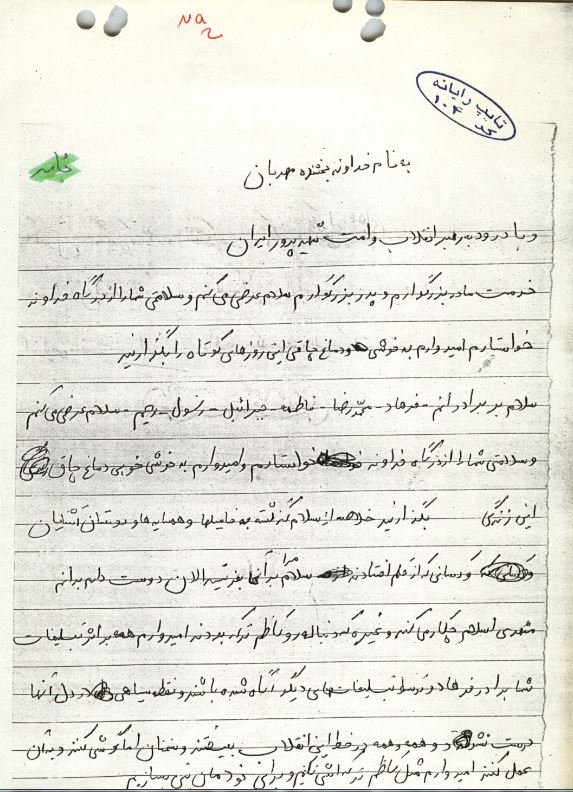 تایپ رایانه
کد ۱۰۴
خانه
به نام خداوند بخشنده مهربان
و با درود به رهبر انقلاب و امت شهید پرور ایران
خدمت مادر بزرگوارم و پدر بزرگوارم سلام عرض می کنم و سلامتی شما را از درگاه خداوند
خواستارم امیدوارم به خوشی و دماغ چاقی این روزهای کوتاه را بگذرانید
سلام بر برادرانم - فرهاد - محمدرضا - فاطمه - جبرائیل - رسول - رحیم - سلام عرض می کنم
و سلامتی شما را از درگاه خداوند خواستارم و امیدوارم به خوشی خوبی دماغ چاق
این زندگی بگذرانید خلاصه از سلام گذشته به فامیلها و همسایه ها و دوستان آشنایان
و کسانی که از قلم افتادند سلام مرا به آنها برسانید الان دوست دارم بدانم
مهدی اسلام چکار می کند و غیره که دنباله رو کاظم ترکه بودند امیدوارم همه بر اثر تبلیغات
شما برادر فرهاد و توسط تبلیغات های دیگر آگاه شده باشند و نقطه سیاهی در دل آنها
درست نشود و همه و همه در خط این انقلاب بیفتند و سخنان امام گوش کنند و بدان
عمل کنند امیدوارم مثل کاظم و برای خودمان بسازیم